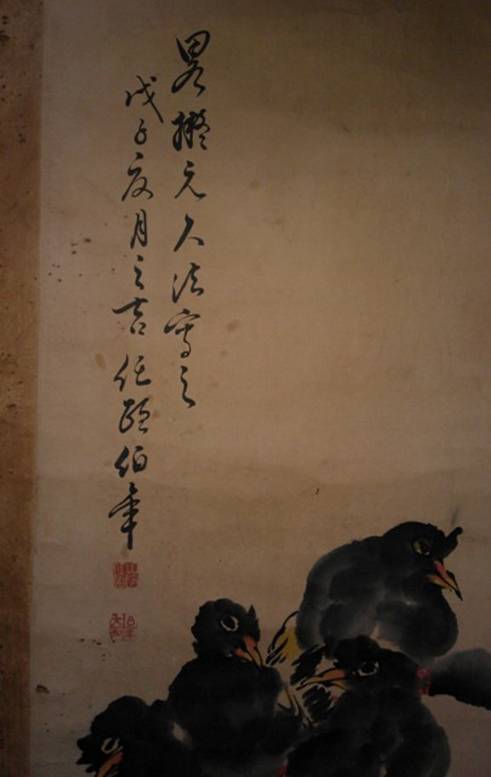 畧擬元人法寫之
戊子夏月之吉任頤伯年